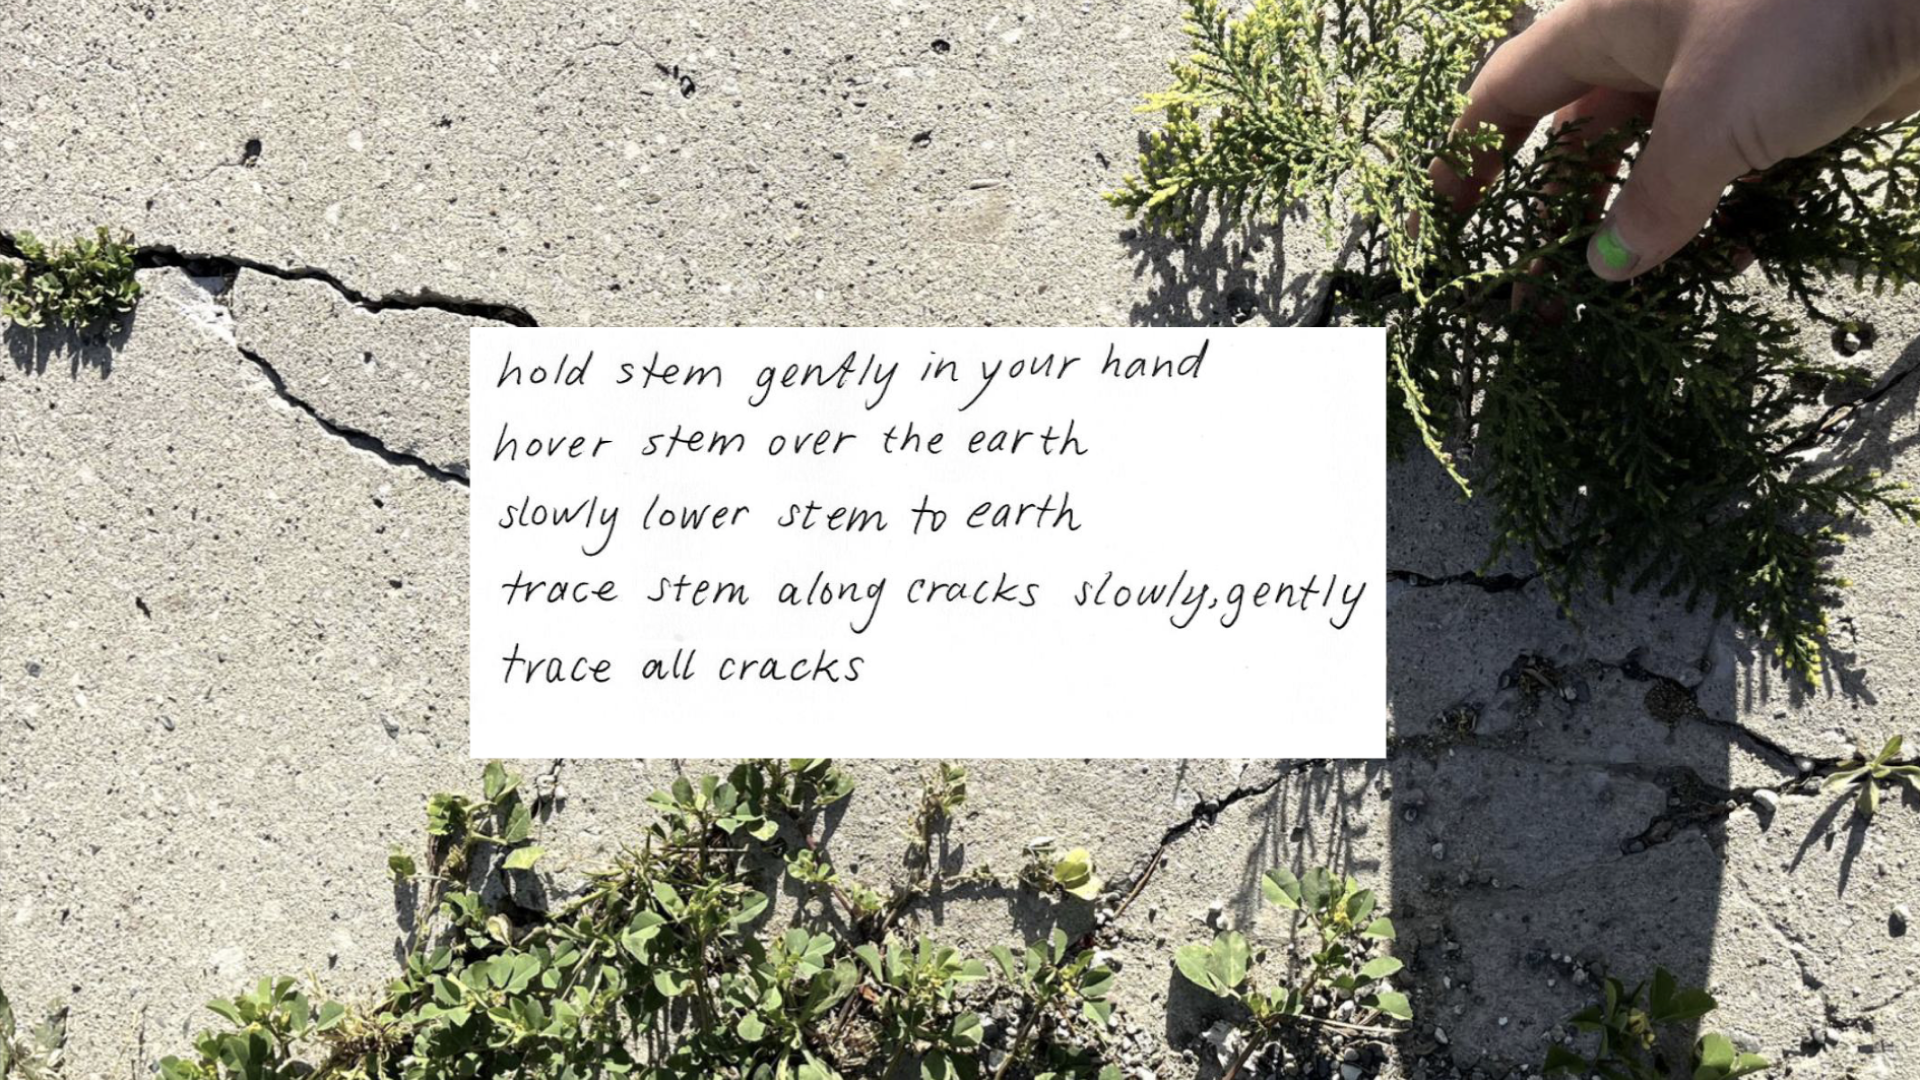 hold stem gently in your hand
hover stem over the earth
slowly lower stem to earth
trace stem along cracks slowly, gently
trace all cracks